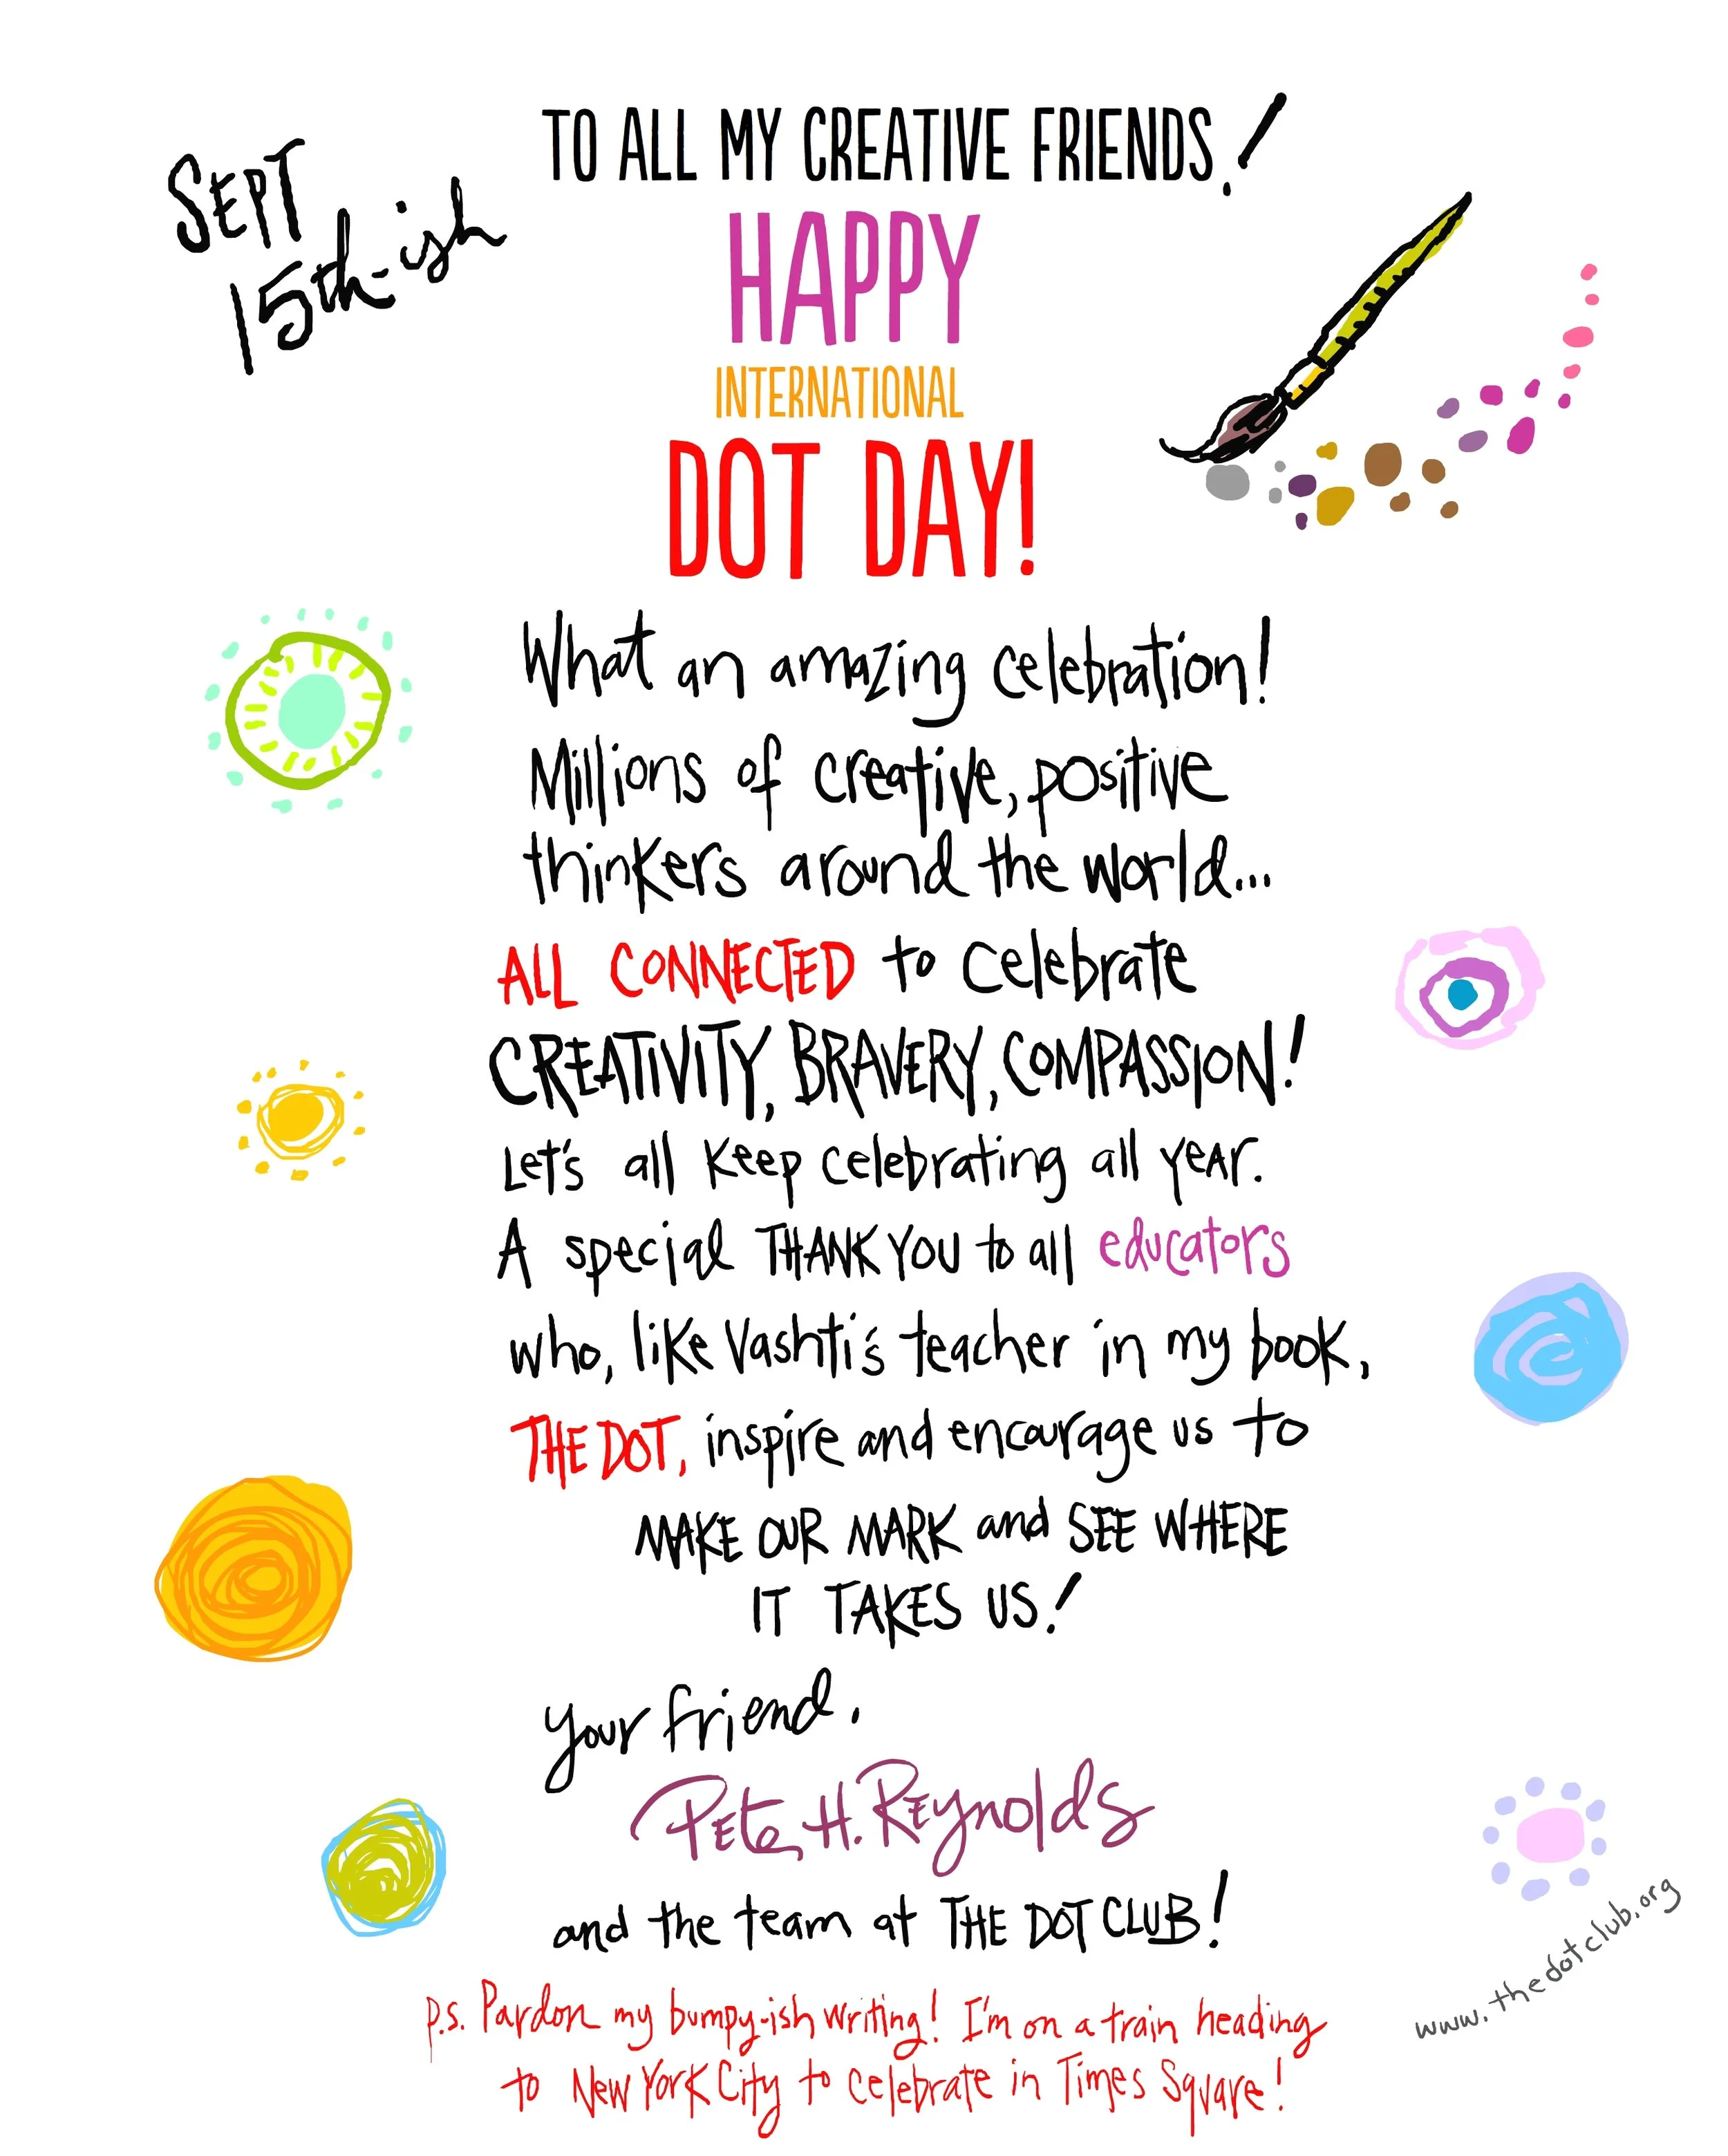 SEPT
15th-ish
TO ALL MY CREATIVE FRIENDS!
HAPPY
INTERNATIONAL
DOT DAY!
What an amazing celebration!
Millions of creative, positive
thinkers around the world...
ALL CONNECTED to celebrate
CREATIVITY, BRAVERY, COMPASSION!
Let's all keep celebrating all year.
A special THANK YOU to all educators
who, like Vashti's teacher in my book,
THE DOT, inspire and encourage us to
MAKE OUR MARK and SEE WHERE
IT TAKES US!
your friend,
Peter H. Reynolds
and the team at THE DOT CLUB!
www.thedotclub.org
p.s. Pardon my bumpy-ish writing! I'm on a train heading
to New York City to celebrate in Times Square!